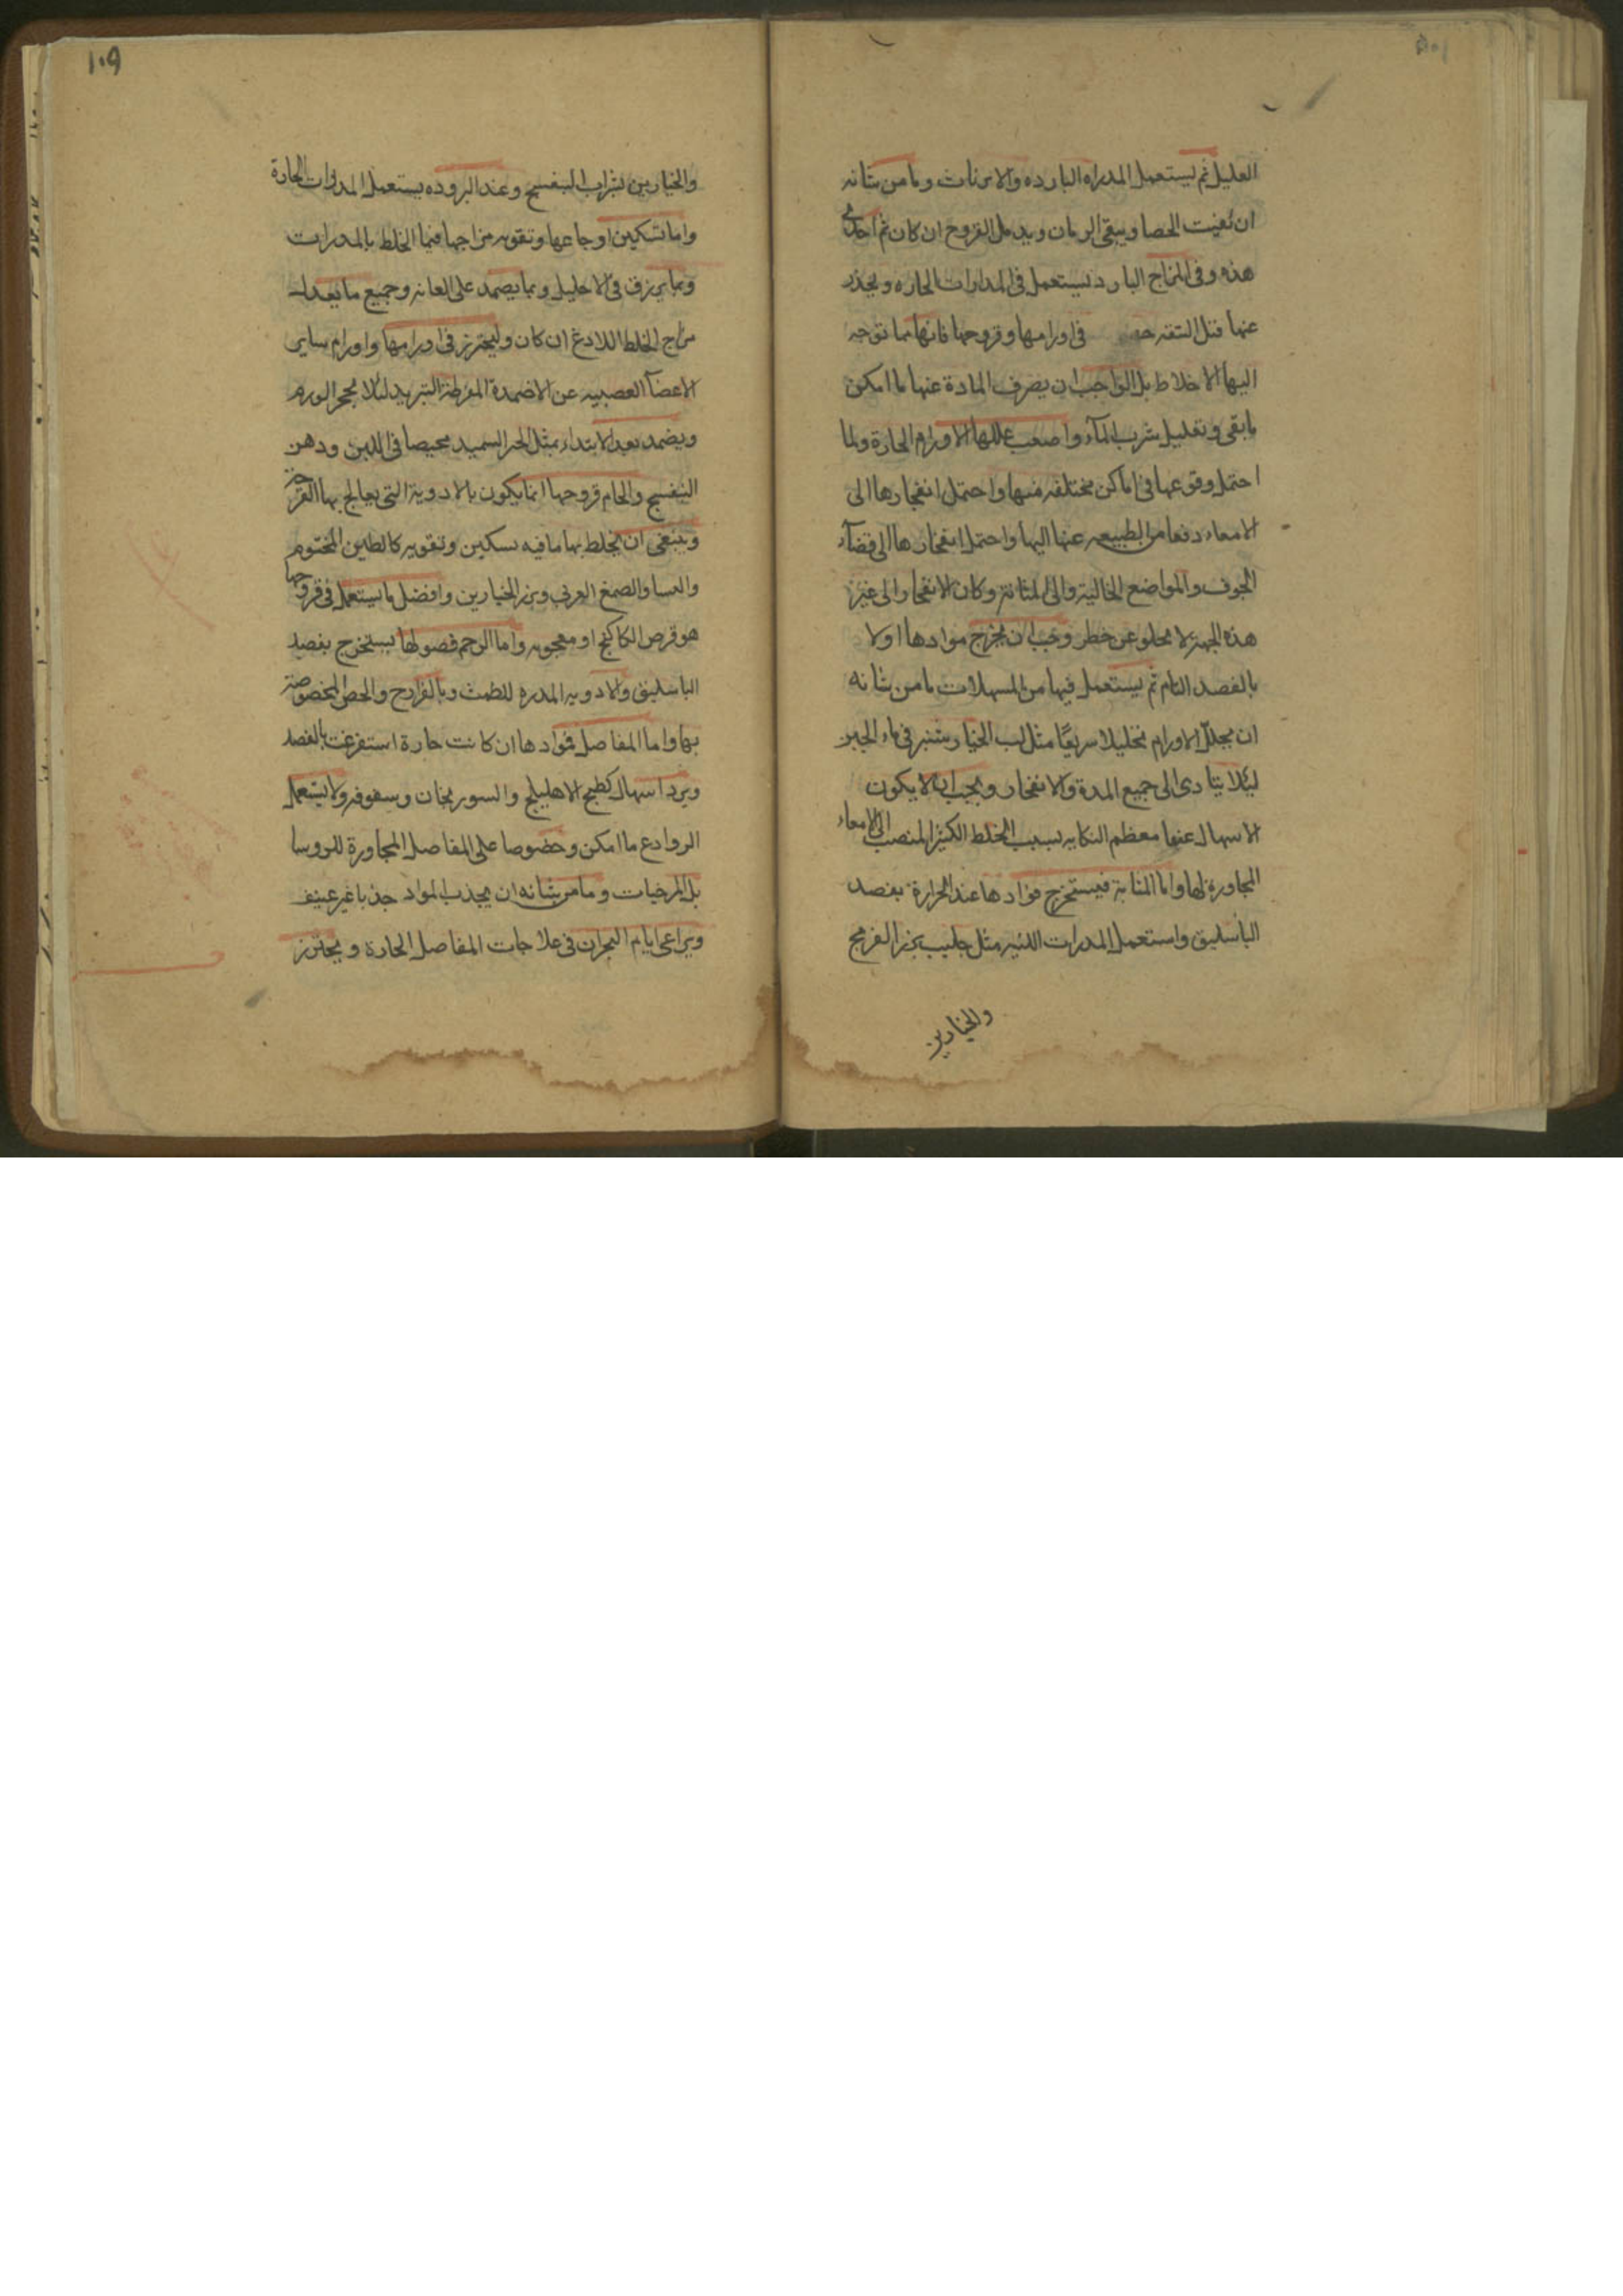 العليل ثم يستعمل المدراه البارده والامرنات وما من شانه
ان يفيت الحصا وينقى الرمان ويدمل القروح ان كان ثم احدى
هذه وفى المزاج البارد يستعمل فى المدارات الحاره ويحذر
عنها قبل التنقه فى اورامها وقروحها فانها مما توجه
اليها الاخلاط بل الواجب ان يصرف المادة عنها ما امكن
ما بقى وتقليل شرب المآء واصعب عللها الاورام الحارة ولما
احتمل وقوعها فى اماكن مختلفه منها واحتمل انفجارها الى
الامعاء دفعا من الطبيعه عنها اليها واحتمل انفجارها الى فضآء
الجوف والمواضع الخالية والى المثانة وكان الانفجار الى غير
هذه الجهة لا يخلو عن خطر وجب ان يخرج موادها اولا
بالفصد التام ثم يستعمل فيها من المسهلات ما من شانه
ان يحلل الاورام تحليلا سريعًا مثل لب الخيار شنبر فى ماء الجبن
ليلا يتادى الى جميع المدة والانفجار ويجب ان لا يكون
الاسهال عنيفا معظم النكايه بسبب الخلط الكثير المنصب الى الامعاء
المجاورة لها واما المثانة فيستخرج موادها عند الحرارة بفصد
الباسليق واستعمل المدرات اللينه مثل حليب بزر الفرفج
والخيارين
١٠٩
والخيارين بشراب البنفسج وعند البروده يستعمل المدرات الحارة
واما تسكين اوجاعها وتقويه مزاجها فبما الخلط بالمدرات
وبما يزرق فى الاحليل وبما يضمد على العانه وجميع ما يعدل
مزاج الخلط اللادغ ان كان وليحترز فى اورامها واورام ساير
الاعضآ العصبيه عن الاضمدة المفرطة التبريد لئلا يحجر الورم
ويضمد بعد الابتداء بمثل الخبز السميد محيصا فى اللبن ودهن
البنفسج والحام قروحها انما يكون بالادوية التى يعالج بها القرحة
وينبغى ان يخلط بها ما فيه تسكين وتقويه كالطين المختوم
والنسا والصمغ العربى وبزر الخيارين وافضل ما يستعمل فى قروحها
هو قرص الكاكنج او معجونه واما الرحم فصولها يستخرج بفصد
الباسليق والادويه المدره للطمث وبالفرازج والحقن المخصوصة
بها واما المفاصل فموادها ان كانت حارة استفرغت بالفصد
ويرد اسهال كطبيخ الاهليلج والسورنجان وسفوفه ولا يستعمل
الروادع ما امكن وخصوصا على المفاصل المجاورة للروسا
بل المرخيات وما من شانه ان يجذب المواد جذبا غير عنيف
ويراعى ايام البحران فى علاجات المفاصل الحارة ويحترز